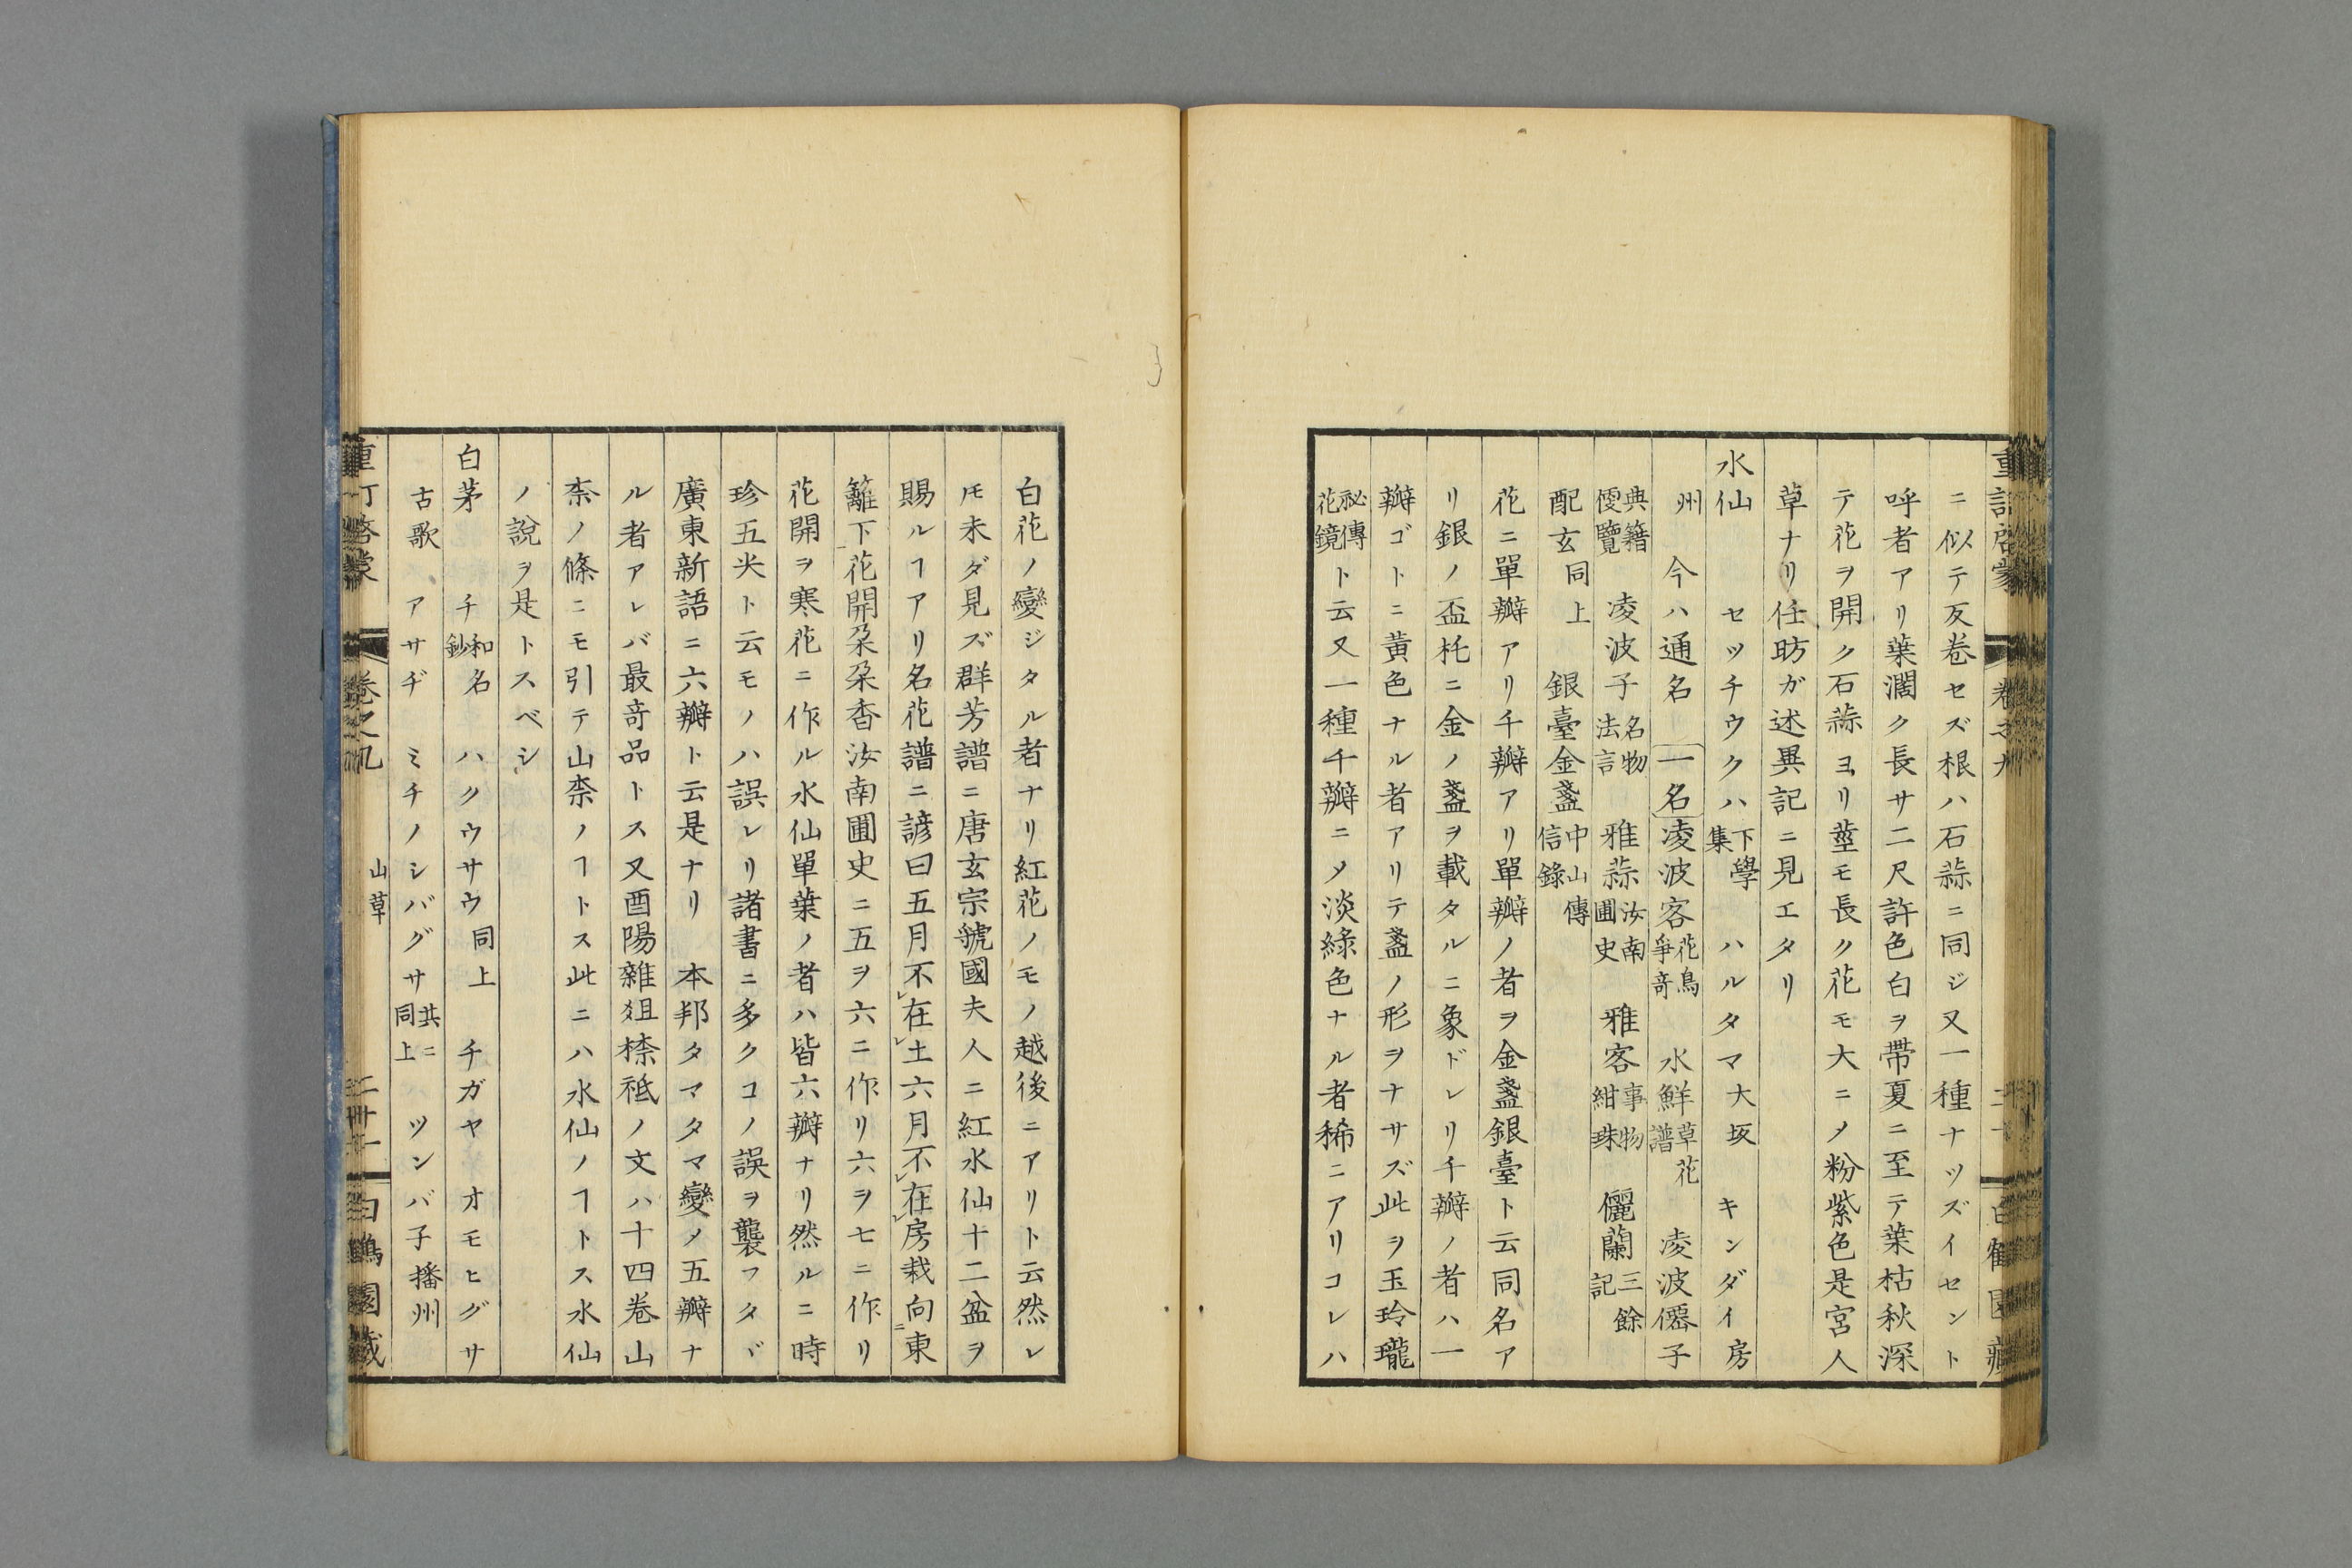 ニ似テ反卷セズ根ハ石蒜ニ同ジ又一種ナツズイセント
呼者アリ葉濶ク長サ二尺許色白ヲ帶夏ニ至テ葉枯秋深
テ花ヲ開ク石蒜ヨリ莖モ長ク花モ大ニメ粉紫色是宮人
草ナリ任昉ガ述異記ニ見エタリ
水仙 セツチウクハ下學集 ハルタマ大坂 キンダイ房
州 今ハ通名 一名凌波客花鳥爭奇 水鮮草花譜 凌波僊子
典籍便覽 凌波子名物法言 雅蒜汝南圃史 雅客事物紺珠 儷蘭三餘記
配玄同上 銀臺金盞中山傳信錄
花ニ單瓣アリ千瓣アリ單瓣ノ者ヲ金盞銀臺ト云同名ア
リ銀ノ盃杔ニ金ノ盞ヲ載タルニ象ドレリ千瓣ノ者ハ一
瓣ゴトニ黃色ナル者アリテ盞ノ形ヲナサズ此ヲ玉玲瓏
祕傳花鏡ト云又一種千瓣ニメ淡綠色ナル者稀ニアリコレハ
白花ノ變ジタル者ナリ紅花ノモノ越後ニアリト云然レ
𪜈未ダ見ズ群芳譜ニ唐玄宗虢國夫人ニ紅水仙十二盆ヲ
賜ルヿアリ名花譜ニ諺曰五月不在土六月不在房栽向東
籬下花開朶朶香汝南圃史ニ五ヲ六ニ作リ六ヲ七ニ作リ
花開ヲ寒花ニ作ル水仙單葉ノ者ハ皆六瓣ナリ然ルニ時
珍五尖ト云モノハ誤レリ諸書ニ多クコノ誤ヲ襲フタヾ
廣東新語ニ六瓣ト云是ナリ 本邦タマタマ變メ五瓣ナ
ル者アレバ最奇品トス又酉陽雜俎㮈祗ノ文ハ十四卷山
柰ノ條ニモ引テ山柰ノヿトス此ニハ水仙ノヿトス水仙
ノ說ヲ是トスベシ
白茅 チ和名鈔 ハクウサウ同上 チガヤ オモヒグサ
古歌 アサヂ ミチノシバグサ共ニ同上 ツンバ子播州
山草
白鶴園藏